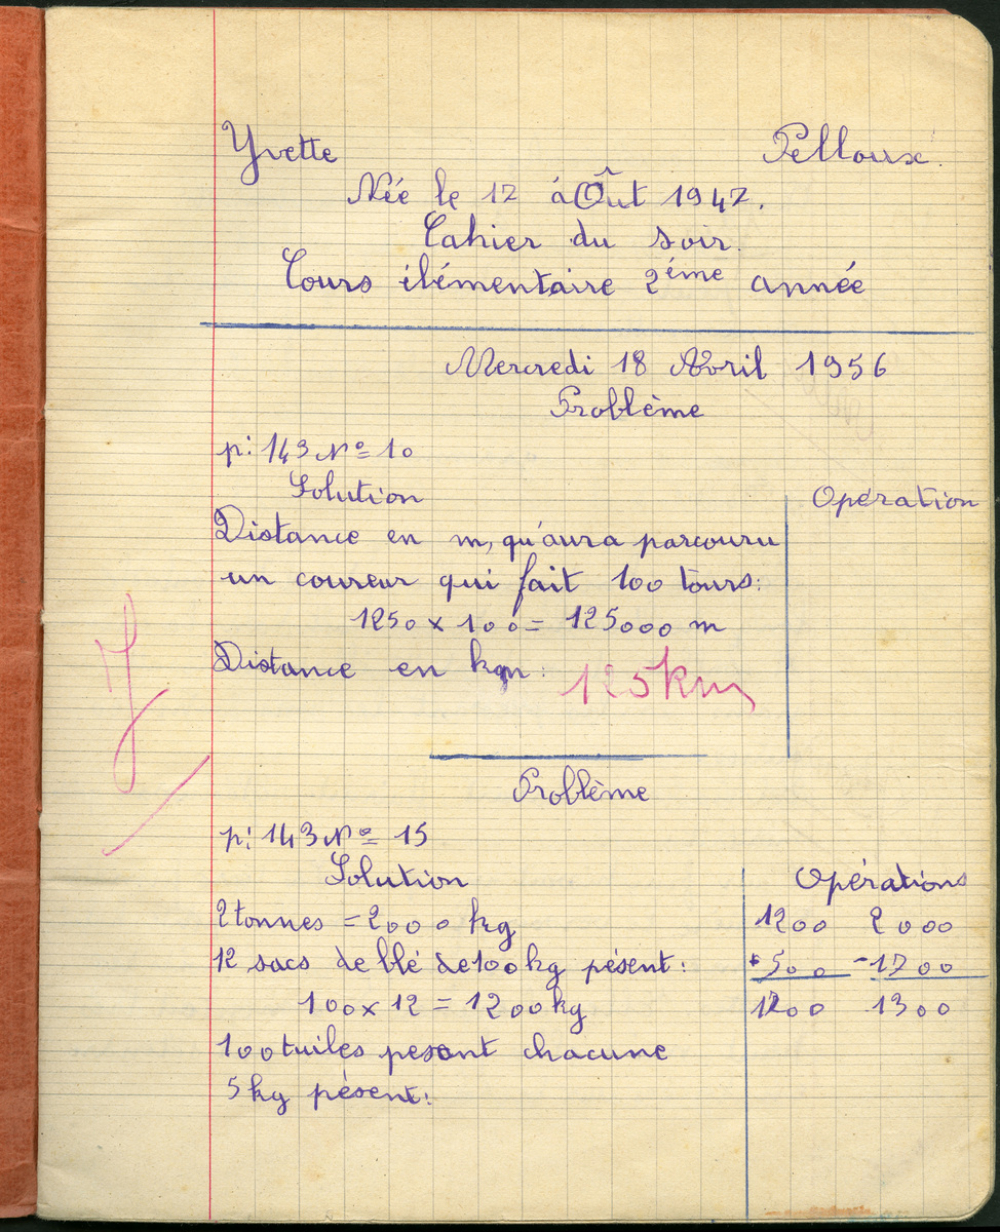 Yvette Pelloux.
Née le 12 àOût 1947.
Cahier du soir.
Cours élémentaire 2ème année
Mercredi 18 Avril 1956
Problème
p: 143 Nº 10
Solution
Opération
Distance en m, qu'aura parcouru
un coureur qui fait 100 tours:
1250 x 100 = 125000 m
Distance en km: 125km
Problème
p: 143 Nº 15
Solution
Opérations
2 tonnes = 2000 kg
12 sacs de blé de 100 kg pésent:
100 x 12 = 1200 kg
100 tuiles pesant chacune
5 kg pésent:
1200 2000
+500 -1700
1700 1300